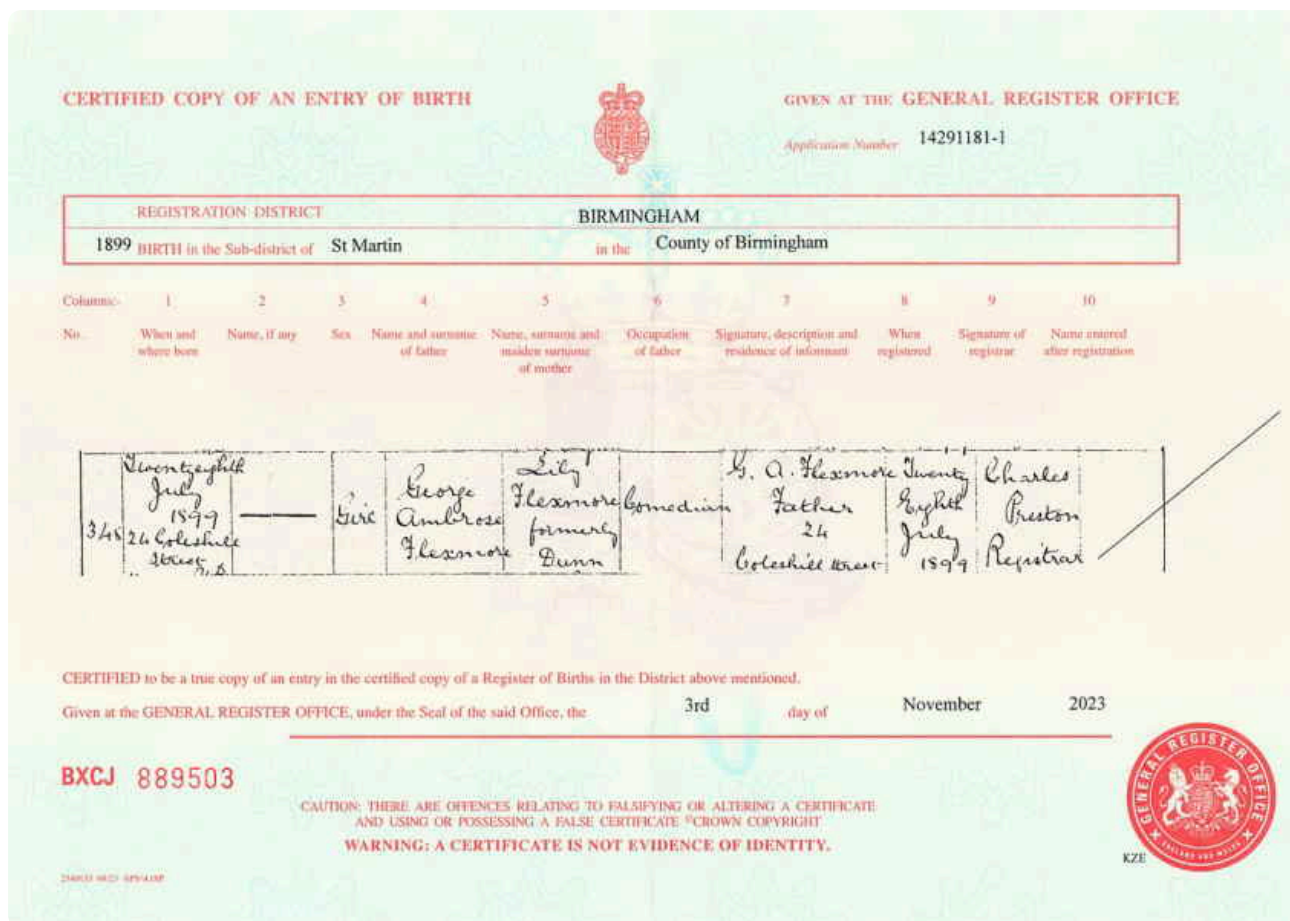 CERTIFIED COPY OF AN ENTRY OF BIRTH
GIVEN AT THE GENERAL REGISTER OFFICE
Application Number 14291181-1
REGISTRATION DISTRICT BIRMINGHAM
1899 BIRTH in the Sub-district of St Martin in the County of Birmingham
Columns:- 1 2 3 4 5 6 7 8 9 10
No. When and where born Name, if any Sex Name and surname of father Name, surname and maiden surname of mother Occupation of father Signature, description and residence of informant When registered Signature of registrar Name entered after registration
348
Twenty eighth
July
1899
24 Coleshill
Street
Girl
George
Ambrose
Flexmore
Lily
Flexmore
formerly
Dunn
Comedian
G. A. Flexmore
Father
24
Coleshill Street
Twenty
Eighth
July
1899
Charles
Preston
Registrar
CERTIFIED to be a true copy of an entry in the certified copy of a Register of Births in the District above mentioned.
Given at the GENERAL REGISTER OFFICE, under the Seal of the said Office, the 3rd day of November 2023
BXCJ 889503
CAUTION: THERE ARE OFFENCES RELATING TO FALSIFYING OR ALTERING A CERTIFICATE
AND USING OR POSSESSING A FALSE CERTIFICATE ©CROWN COPYRIGHT
WARNING: A CERTIFICATE IS NOT EVIDENCE OF IDENTITY.
GENERAL REGISTER OFFICE
ENGLAND AND WALES
KZE